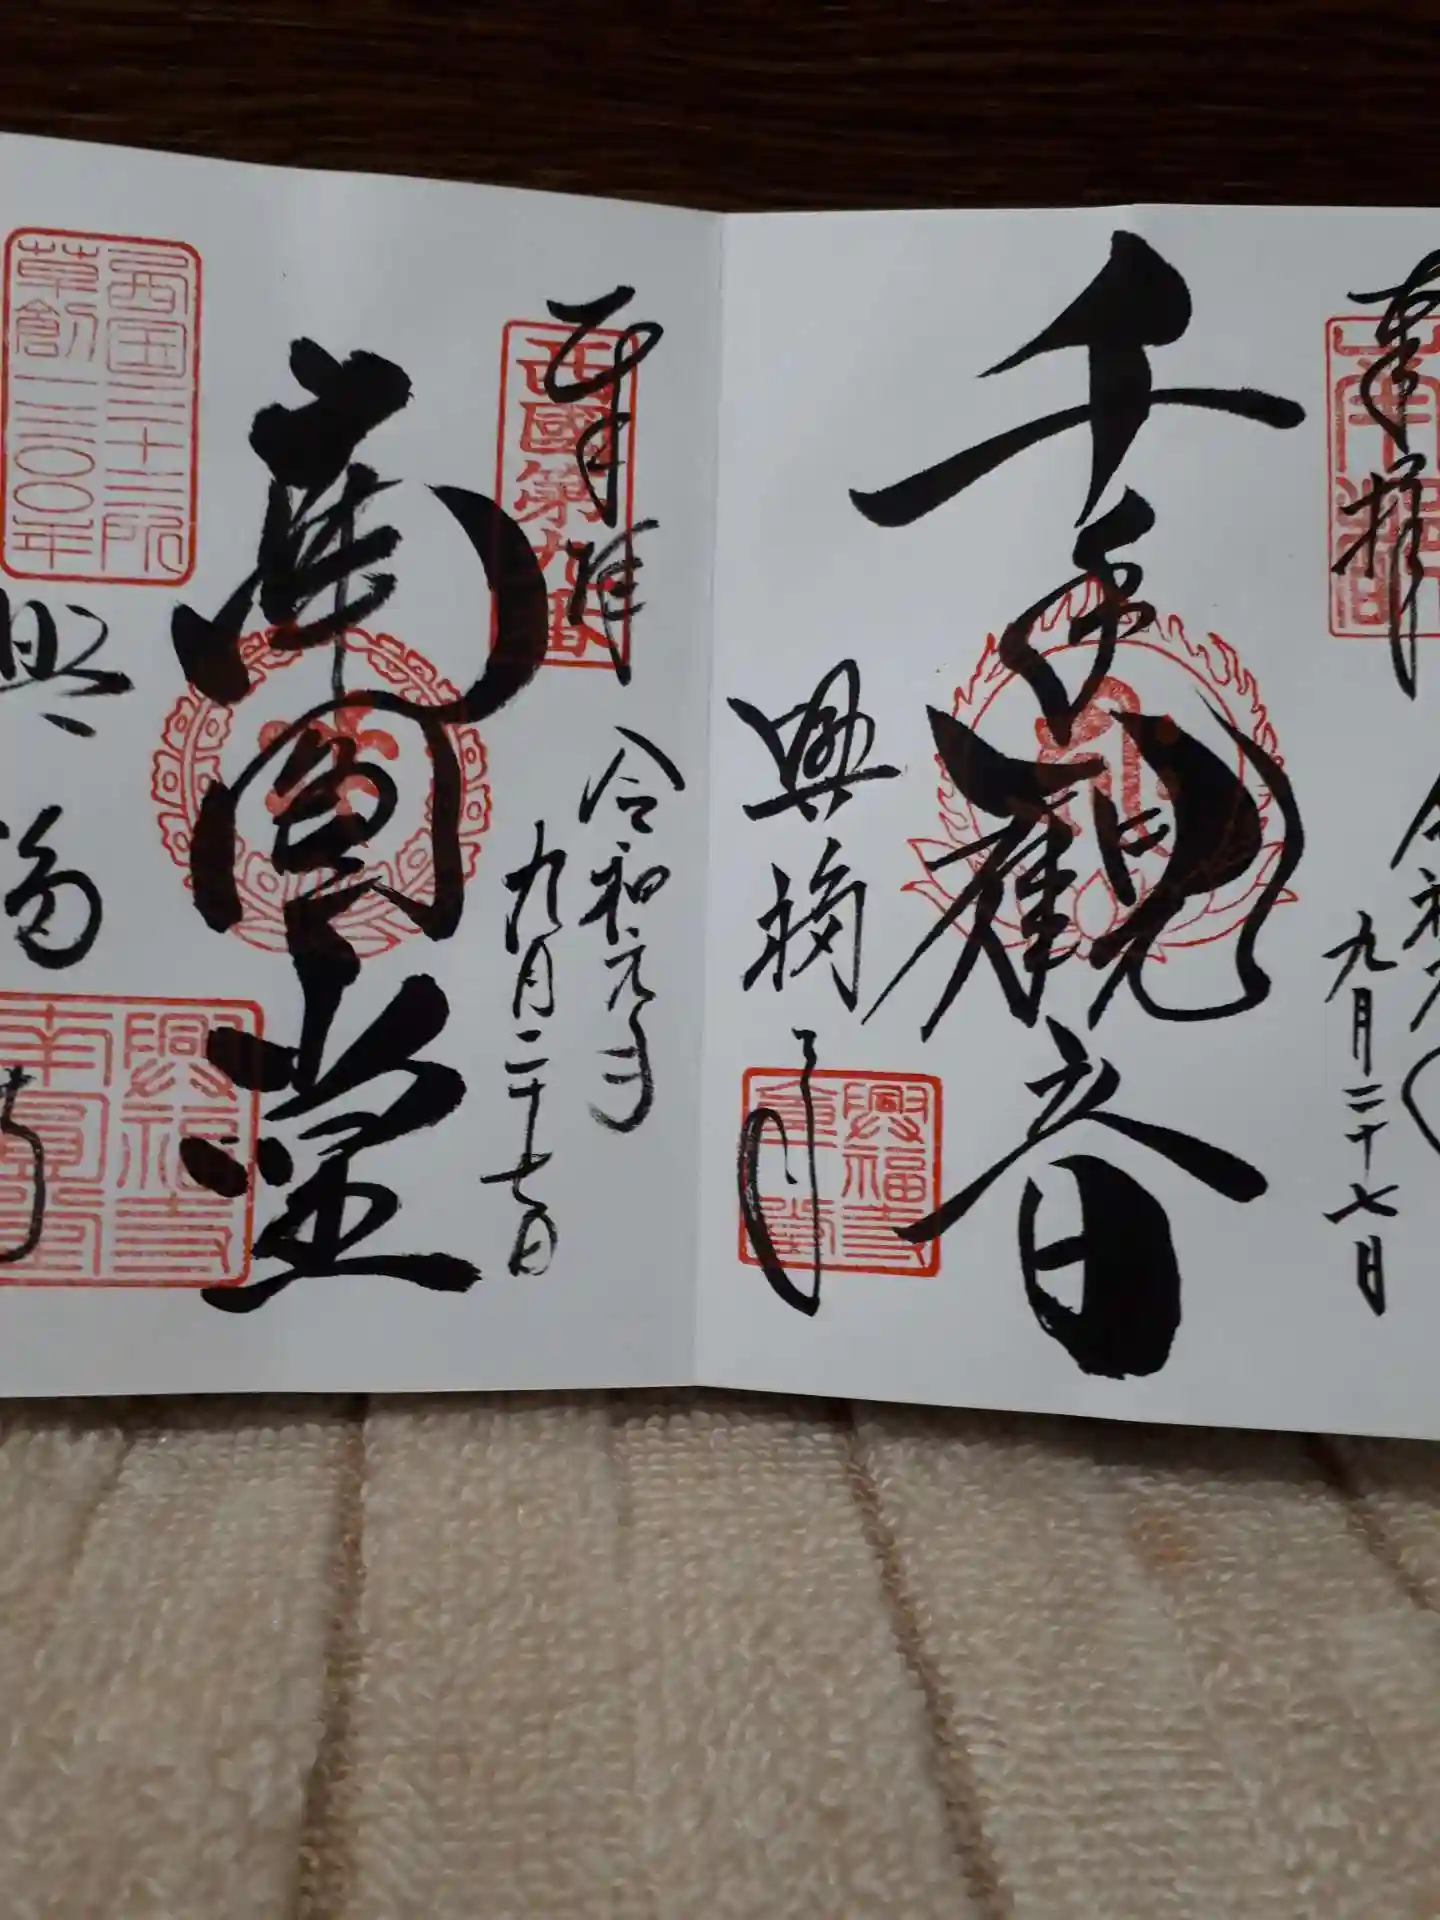 奉拝
令和元年
九月二十七日
千手観音
興福寺
興福寺
奉拝
西國第九番
令和元年
九月二十七日
南圓堂
西国三十三所
草創一三〇〇年
興福寺
興福寺
南円堂